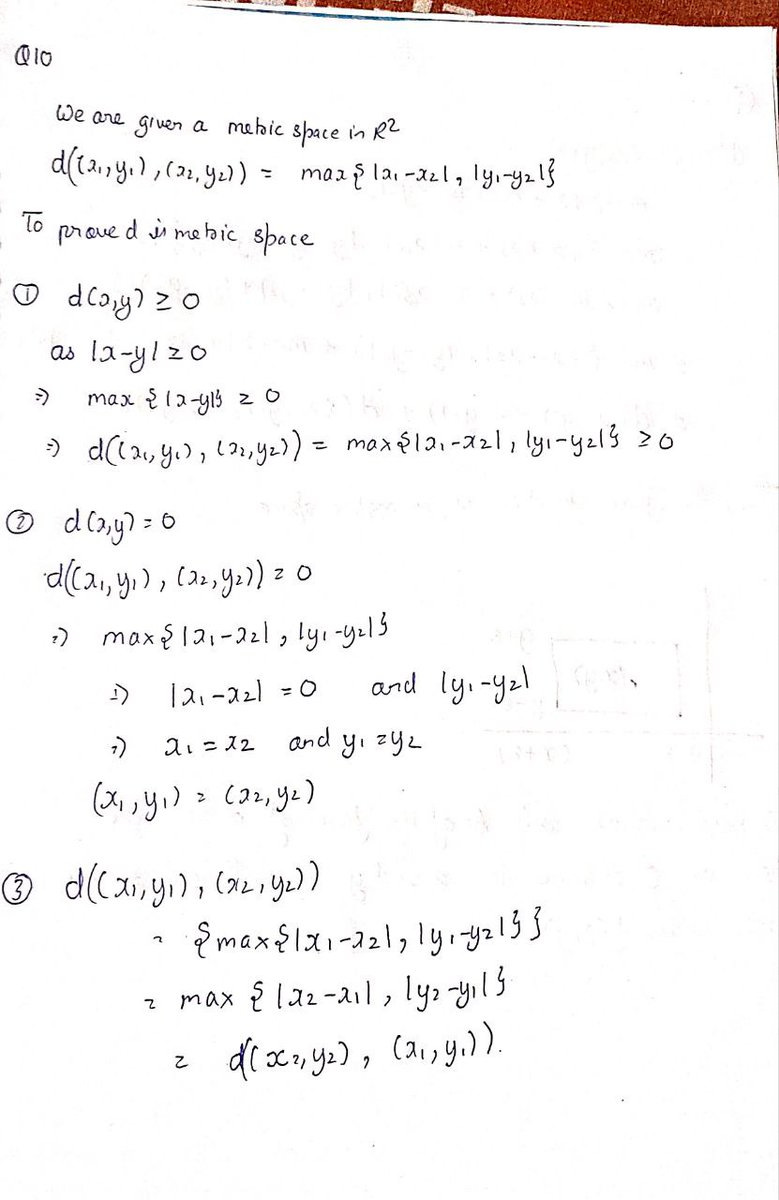 Q10
We are given a metric space in R²
d((x₁,y₁),(x₂,y₂)) = max{|x₁-x₂|, |y₁-y₂|}
To prove d is metric space
① d(x,y) ≥ 0
as |x-y| ≥ 0
⇒ max {|x-y|} ≥ 0
⇒ d((x₁,y₁), (x₂,y₂)) = max{|x₁-x₂|, |y₁-y₂|} ≥ 0
② d(x,y) = 0
d((x₁,y₁), (x₂,y₂)) = 0
⇒ max{|x₁-x₂|, |y₁-y₂|}
⇒ |x₁-x₂| = 0 and |y₁-y₂|
⇒ x₁ = x₂ and y₁ = y₂
(x₁,y₁) = (x₂,y₂)
③ d((x₁,y₁), (x₂,y₂))
= {max{|x₁-x₂|, |y₁-y₂|}}
= max {|x₂-x₁|, |y₂-y₁|}
= d(x₂,y₂), (x₁,y₁)).